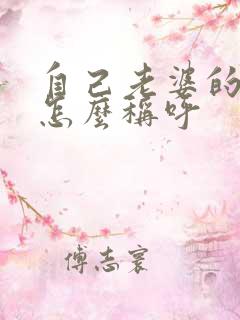 自己老婆的
怎麼稱呼
傅志寰